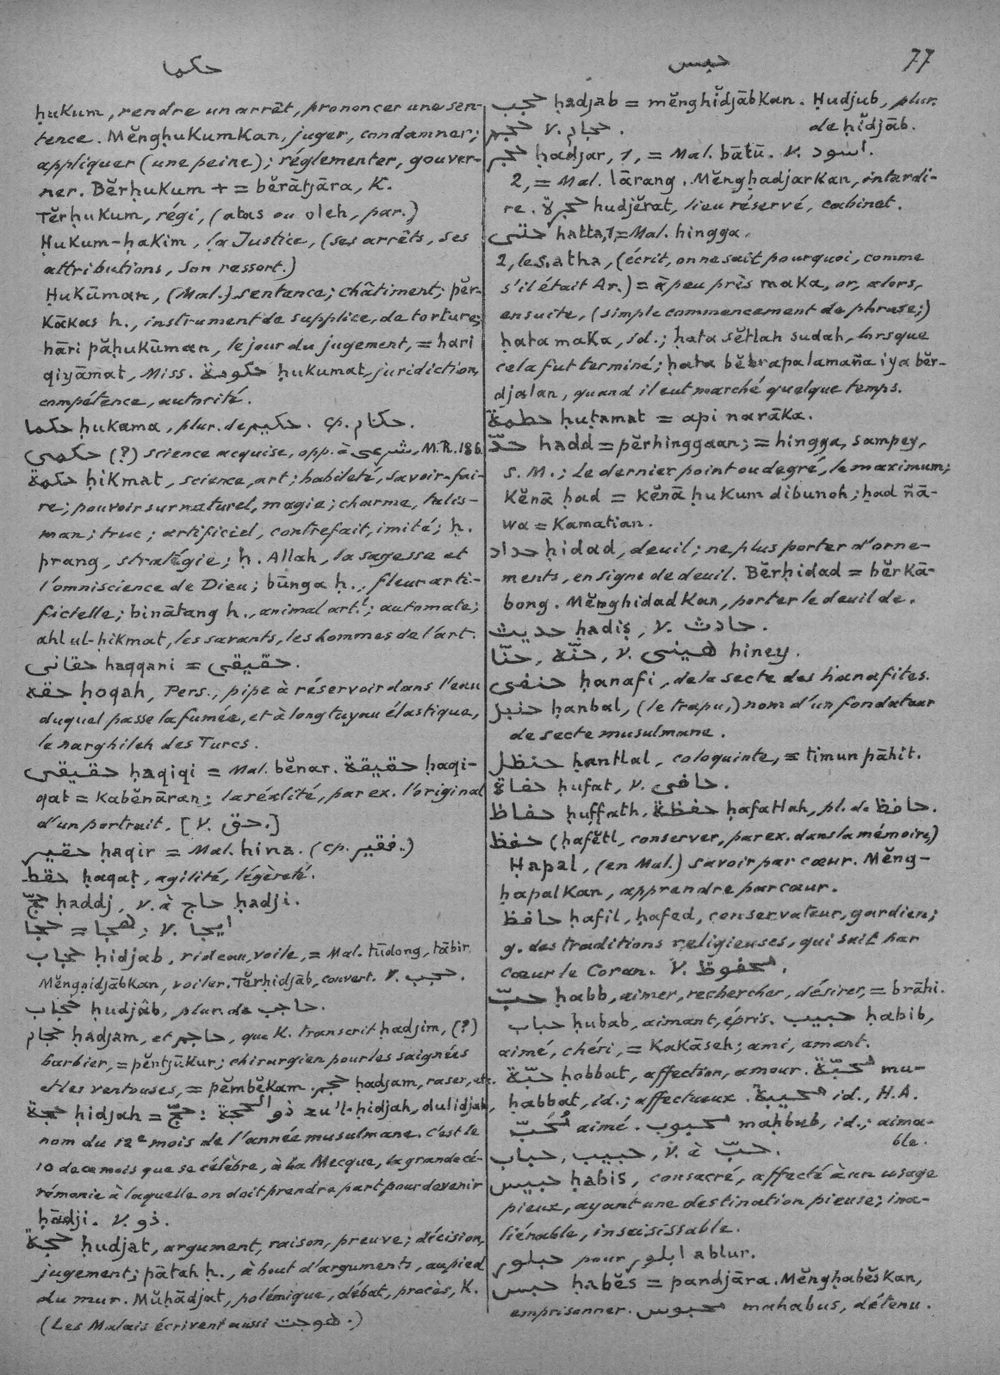 حكما
حبس
77
ḥukum, rendre un arrêt, prononcer une sen-
tence. Mĕngḥukumkan, juger, condamner;
appliquer (une peine); réglementer, gouver-
ner. Bĕrḥukum + = bĕrātjāra, K.
Tĕrḥukum, régi, (atas ou oleh, par.)
Ḥukum-ḥakim, la Justice, (ses arrêts, ses
attributions, son ressort.)
Ḥukūman, (Mal.) sentence; châtiment; pĕr-
kākas ḥ., instrument de supplice, de torture;
hāri pĕḥukūman, le jour du jugement, = hari
qiyāmat, Miss. حكومة ḥukumat, juridiction,
compétence, autorité.
حكما ḥukama, plur. de حكيم. cp. حكّام.
حكمي (?) science acquise, opp. à شرعي, M.R. 186.
حكمة ḥikmat, science, art; habileté, savoir-fai-
re; pouvoir surnaturel, magie; charme, talis-
man; truc; artificiel, contrefait, imité; ḥ.
prang, stratégie; ḥ. Allah, la sagesse et
l'omniscience de Dieu; būnga ḥ., fleur arti-
ficielle; binātang ḥ., animal art.l; automate;
ahl ul-ḥikmat, les savants, les hommes de l'art.
حقاني haqqani = حقيقي.
حقه ḥoqah, Pers., pipe à réservoir dans l'eau
duquel passe la fumée, et à long tuyau élastique,
le narghileh des Turcs.
حقيقي ḥaqiqi = Mal. bĕnar. حقيقة ḥaqi-
qat = kabĕnāran; la réalité, par ex. l'original
d'un portrait. [V. حق.]
حقير ḥaqir = Mal. hina. (cp. فقير.)
حقط ḥaqaṭ, agilité, légèreté.
حجّ ḥaddj, v. à حاج ḥadji.
حجا = هجا; v. ايجا
حجاب ḥidjab, rideau, voile, = Mal. tūdong, tābir.
Mĕngḥidjābkan, voiler. Tĕrḥidjāb, couvert. V. حجب.
حجّاب ḥudjâb, plur. de حاجب.
حجام ḥadjam, et حاجم, que K. transcrit ḥadjim, (?)
barbier, = pĕntjūkur; chirurgien pour les saignées
et les ventouses, = pĕmbĕkam. حجم ḥadjam, raser, etc.
حجة ḥidjah = حجّ: ذو الحجة zu'l-ḥidjah, dulidjah,
nom du 12e mois de l'année musulmane. C'est le
10 de ce mois que se célèbre, à la Mecque, la grande cé-
rémonie à laquelle on doit prendre part pour devenir
ḥādji. V. ذو.
حجة ḥudjat, argument, raison, preuve; décision,
jugement; pātah ḥ., à bout d'arguments, au pied
du mur. Mŭḥādjat, polémique, débat, procès, K.
(Les Malais écrivent aussi هوجت.)
حجب ḥadjab = mĕnghĭdjābkan. Ḥudjub, plur.
de ḥĭdjāb.
حجم v. حجام.
حجر ḥadjar, 1, = Mal. bātū. v. اسود.
2, = Mal. lārang. Mĕngḥadjarkan, interdi-
re. حجرة hudjĕrat, lieu réservé, cabinet.
حتى hatta, 1 = Mal. hingga.
2, les. atha, (écrit, on ne sait pourquoi, comme
s'il était Ar.) = à peu près maka, or, alors,
ensuite, (simple commencement de phrase;)
ḥata maka, id.; ḥata sĕtlah sudah, lorsque
cela fut terminé; ḥata bĕbrapa lamaña iya bĕr-
djalan, quand il eut marché quelque temps.
حطمة ḥuṭamat = api narāka.
حدّ hadd = pĕrhinggaan; = hingga, sampey,
S. M.; le dernier point ou degré, le maximum;
kĕnā ḥad = kĕnā ḥukum dibunoh; ḥad ñā-
wa = kamatian.
حداد ḥidad, deuil; ne plus porter d'orne-
ments, en signe de deuil. Bĕrḥidad = bĕrkā-
bong. Mĕnghidadkan, porter le deuil de.
حديث ḥadiṣ, v. حادث.
حنّا, حنّه, v. هيني hiney.
حنفي ḥanafi, de la secte des hanafites.
حنبل ḥanbal, (le trapu,) nom d'un fondateur
de secte musulmane.
حنظل ḥantlal, coloquinte, = timun pāhit.
حفاة ḥufat, v. حافي.
حفاظ ḥuffath, حفظة ḥafatlah, pl. de حافظ.
حفظ (ḥafĕtl, conserver, par ex. dans la mémoire,)
Ḥapal, (en Mal.) savoir par cœur. Mĕng-
ḥapalkan, apprendre par cœur.
حافظ ḥafil, ḥafed, conservateur, gardien;
g. des traditions religieuses, qui sait par
cœur le Coran. V. محفوظ.
حبّ ḥabb, aimer, rechercher, désirer, = brāhi.
حباب ḥubab, aimant, épris. حبيب ḥabib,
aimé, chéri, = kakāseh; ami, amant.
حبّة ḥobbat, affection, amour. محبّة mu-
ḥabbat, id.; affectueux. محبيبة id., H.A.
مُحَبّ aimé. محبوب maḥbub, id.; aima-
ble.
حباب, حبيب, v. à حبّ.
حبيس ḥabis, consacré, affecté à un usage
pieux, ayant une destination pieuse; ina-
liénable, insaisissable.
حبلور pour ابلور ablur.
حبس ḥabĕs = pandjāra. Mĕngḥabĕskan,
emprisonner. محبوس mahabus, détenu.